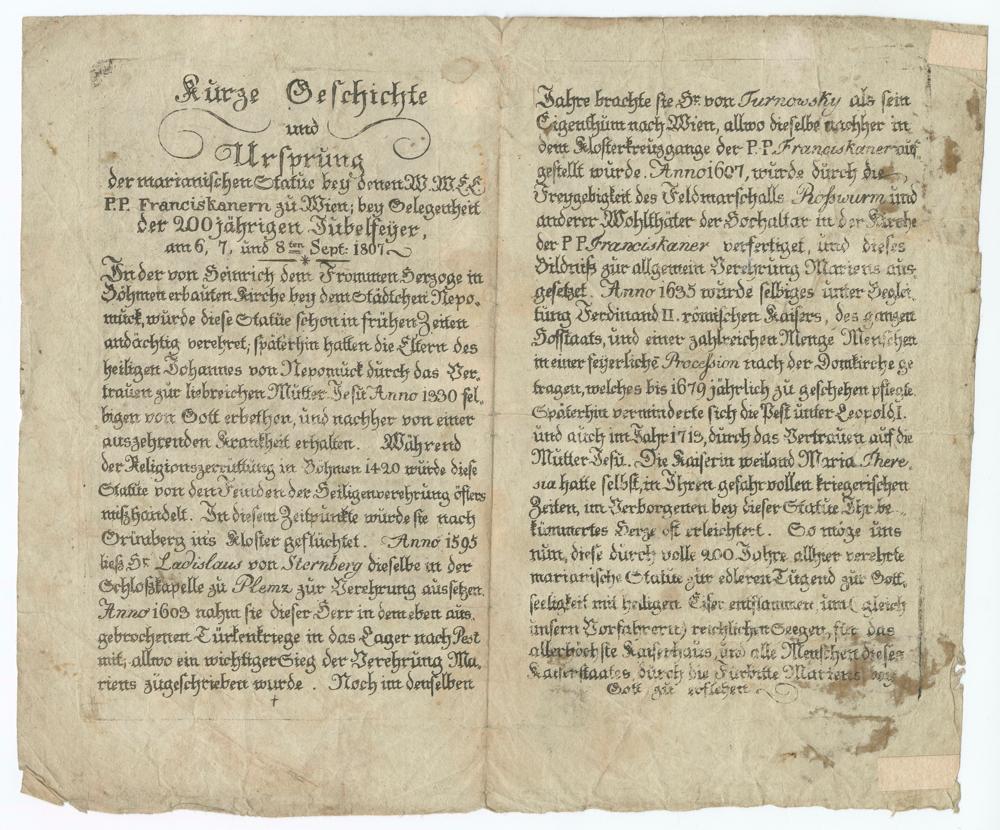 Kurze Geschichte
und
Ursprung
der marianischen Statue bey denen W.W.E.E.
P.P. Franciskanern zu Wien; bey Gelegenheit
der 200 jährigen Jubelfeyer,
am 6, 7, und 8ten Sept: 1807.
In der von Heinrich dem Frommen Herzoge in
Böhmen erbauten Kirche bey dem Städtchen Nepo-
muck, wurde diese Statue schon in frühen Zeiten
andächtig verehret; späterhin hatten die Eltern des
heiligen Johannes von Nepomuck durch das Ver-
trauen zur liebreichen Mutter Jesu Anno 1330 sel-
bigen von Gott erbethen, und nachher von einer
auszehrenden Krankheit erhalten. Während
der Religionszerrüttung in Böhmen 1420 wurde diese
Statue von den Feinden der Heiligenverehrung öfters
mißhandelt. In diesem Zeitpunkte wurde sie nach
Grünberg ins Kloster geflüchtet. Anno 1595
ließ Hr. Ladislaus von Sternberg dieselbe in der
Schloßkapelle zu Plemz zur Verehrung aussetzen.
Anno 1603 nahm sie dieser Herr in dem eben aus-
gebrochenen Türkenkriege in das Lager nach Pest
mit, allwo ein wichtiger Sieg der Verehrung Ma-
riens zugeschrieben wurde. Noch im denselben
Jahre brachte sie Hr. von Turnowsky als sein
Eigenthum nach Wien, allwo dieselbe nachher in
dem Klosterkreuzgange der P.P. Franciskaner auf
gestellt wurde. Anno 1607, wurde durch die
Freygebigkeit des Feldmarschalls Roßwurm und
anderer Wohlthäter der Hochaltar in der Kirche
der P.P. Franciskaner verfertiget, und dieses
Bildniß zur allgemein Verehrung Mariens aus-
gesetzet. Anno 1635 wurde selbiges unter Beglei-
tung Ferdinand II. römischen Kaisers, des ganzen
Hofstaats, und einer zahlreichen Menge Menschen
in einer feyerliche Procession nach der Domkirche ge
tragen, welches bis 1679 jährlich zu geschehen pflegte.
Späterhin verminderte sich die Pest unter Leopold I.
und auch im Jahr 1713, durch das Vertrauen auf die
Mutter Jesu. Die Kaiserin weiland Maria There-
sia hatte selbst, in Ihren gefahrvollen kriegerischen
Zeiten, im Verborgenen bey dieser Statue Ihr be-
kümmertes Herze oft erleichtert. So möge uns
nun, diese durch volle 200 Jahre allhier verehrte
marianische Statue zur edleren Tugend zur Gott-
seeligkeit mit heiligen Eifer entflammen, um (gleich
unsern Vorfahrern) reichlichen Seegen, für das
allerhöchste Kaiserhaus, und alle Menschen dieses
Kaiserstaates, durch die Fürbitte Mariens bey
Gott zu erflehen.